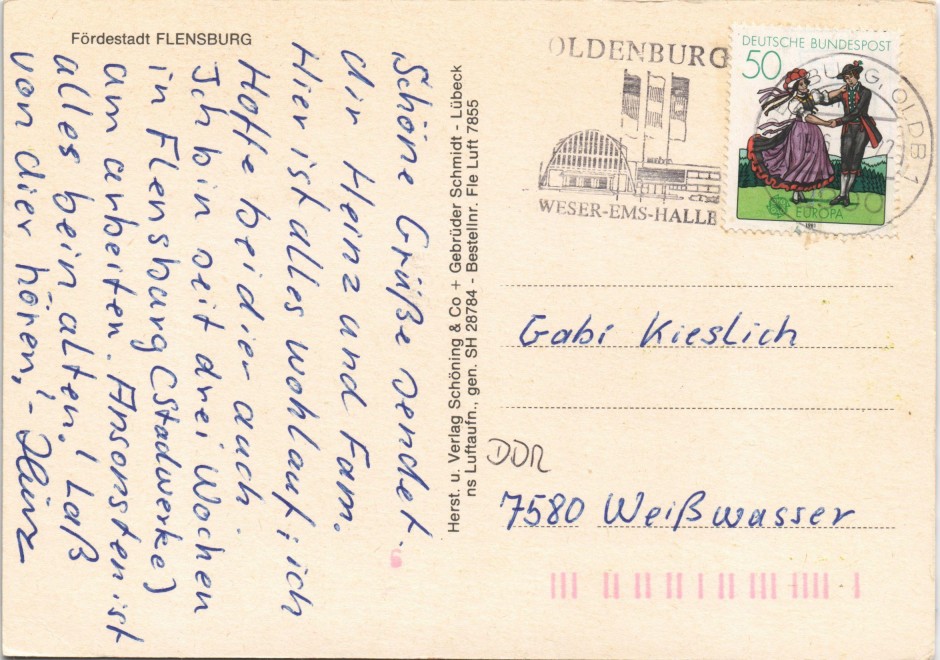 Fördestadt FLENSBURG
Schöne Grüße sendet
dir Heinz und Fam.
Hier ist alles wohlauf, ich
Hoffe bei dier auch.
Ich bin seit drei Wochen
in Flensburg (Stadwerke)
am arbeiten. Ansonsten ist
alles bein alten! Laß
von dier hören! - Heinz
Herst. u. Verlag Schöning & Co + Gebrüder Schmidt - Lübeck
ns Luftaufn., gen. SH 28784 - Bestellnr. Fle Luft 7855
OLDENBURG
WESER-EMS-HALLE
DEUTSCHE BUNDESPOST
50
EUROPA
1981
BURG, OLDB 1
Gabi Kieslich
DDR
7580 Weißwasser